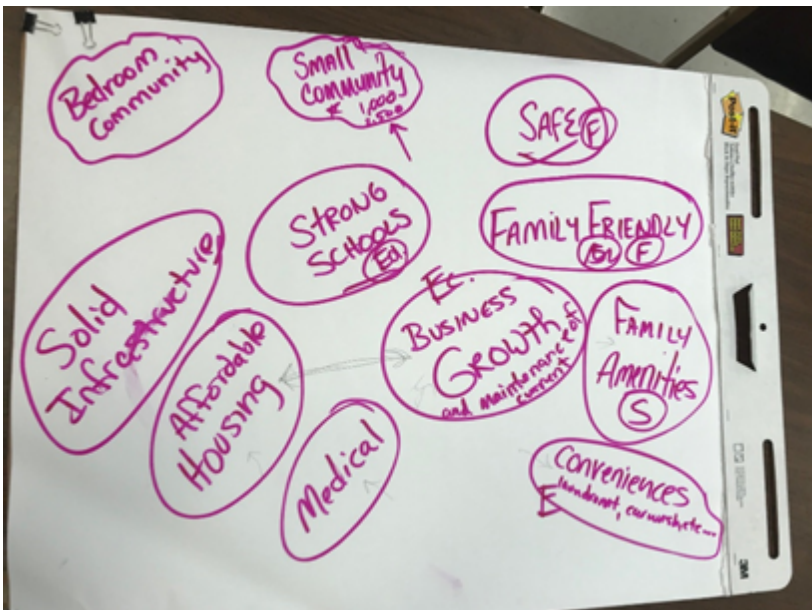 Bedroom
Community
SMALL
COMMUNITY
1,000
SAFE F
STRONG
SCHOOLS
Ed
FAMILY FRIENDLY
F
Solid
Infrastructure
Affordable
Housing
Medical
Ec.
BUSINESS
GROWTH
and maintenance of
current
FAMILY
Amenities
S
Conveniences
E
Post-it
3M